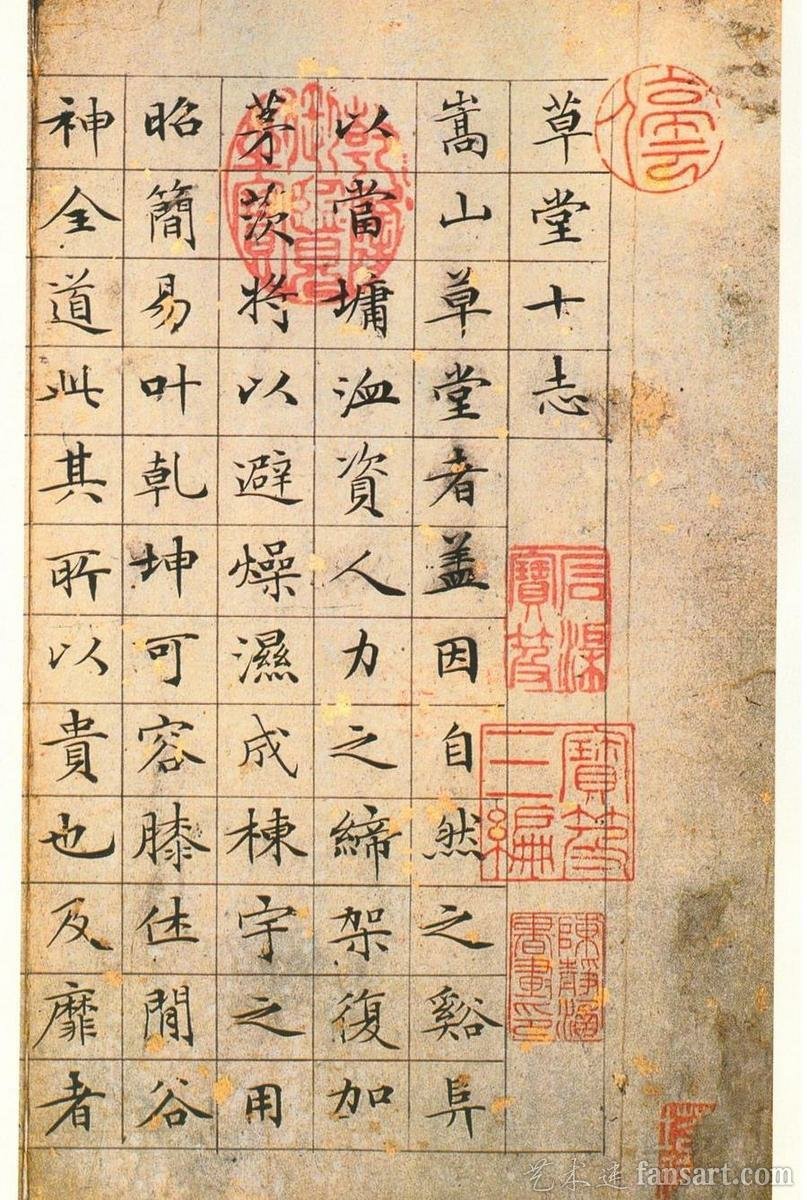 草堂十志
嵩山草堂者盖因自然之谿阜
以當墉洫資人力之締架復加
茅茨將以避燥濕成棟宇之用
昭簡易叶乾坤可容膝休閒谷
神全道此其所以貴也及靡者
石渠寶笈
寶笈三編
乾隆御覽之寶
艺术迷 fansart.com